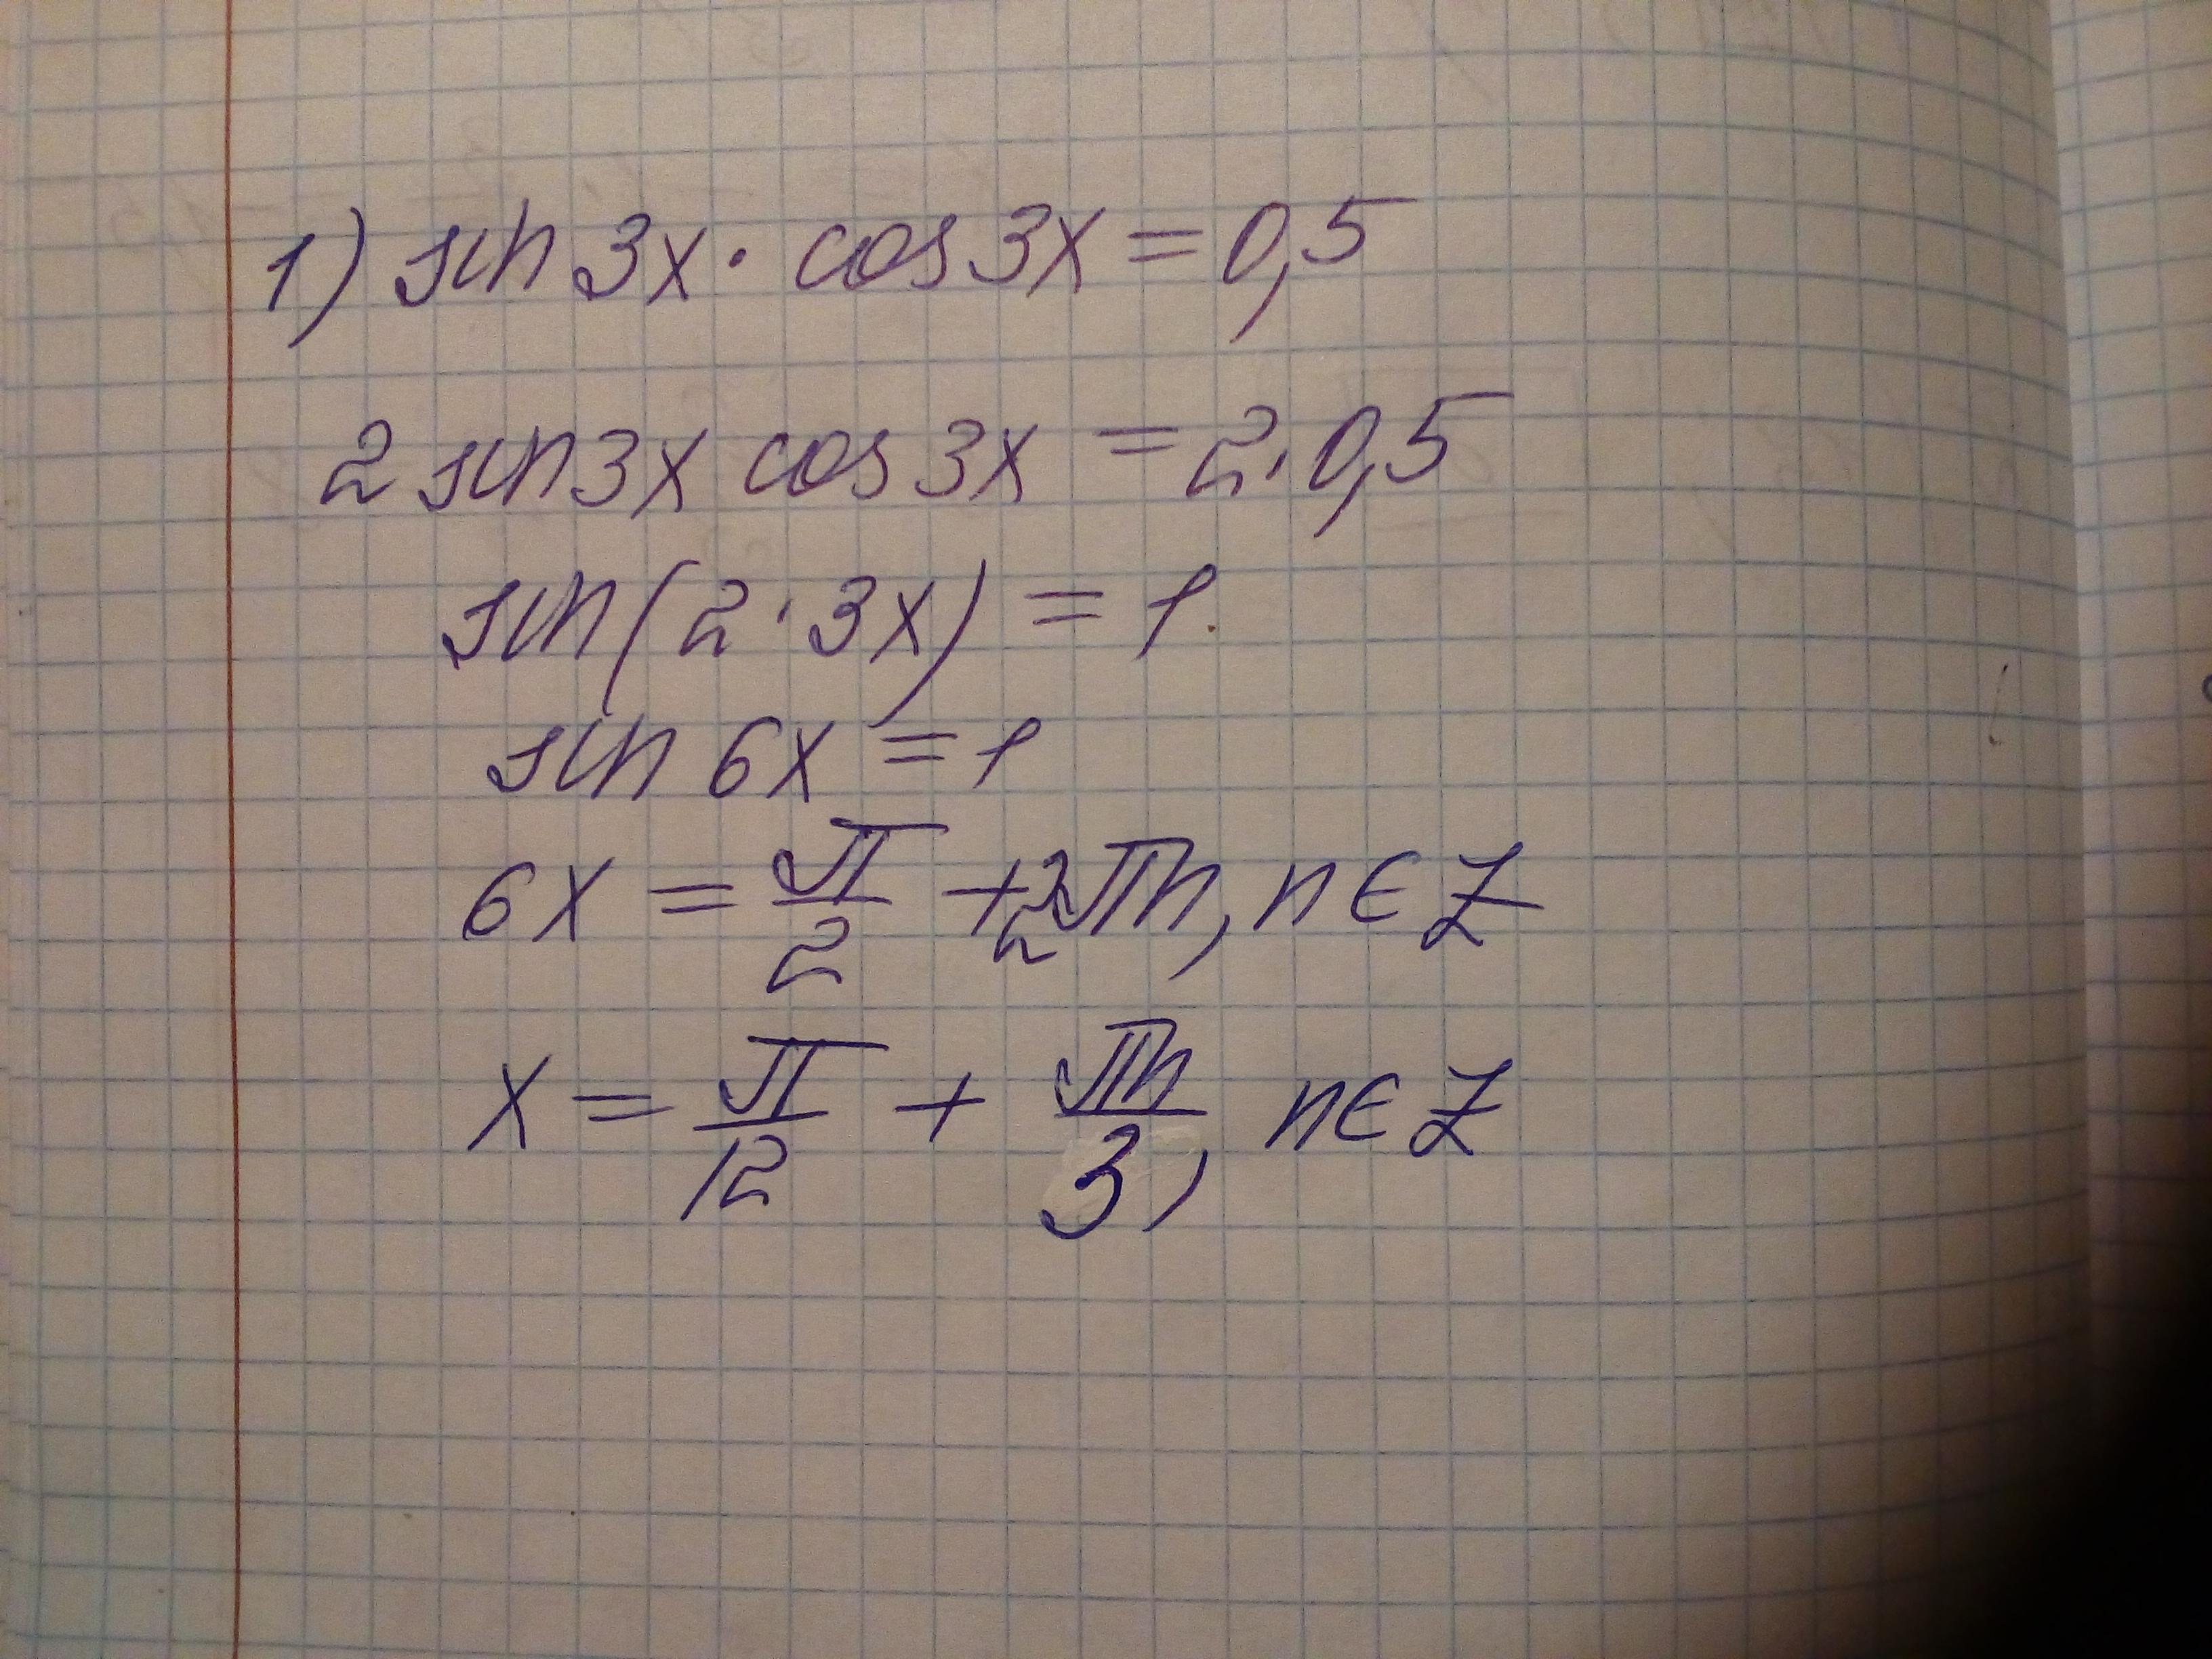 1) sin 3x · cos 3x = 0,5
2 sin 3x cos 3x = 2 · 0,5
sin(2 · 3x) = 1
sin 6x = 1
6x = π/2 + 2πn, n ∈ Z
x = π/12 + πn/3, n ∈ Z